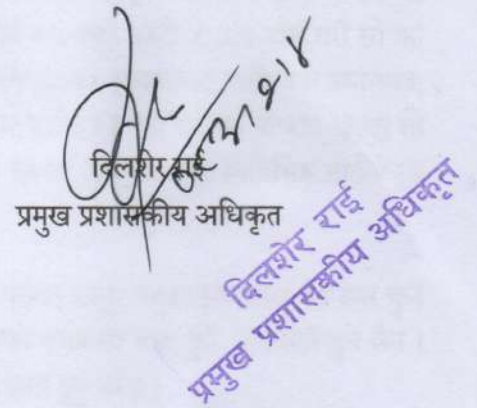 दिलशेर राई
प्रमुख प्रशासकीय अधिकृत
दिलशेर राई
प्रमुख प्रशासकीय अधिकृत